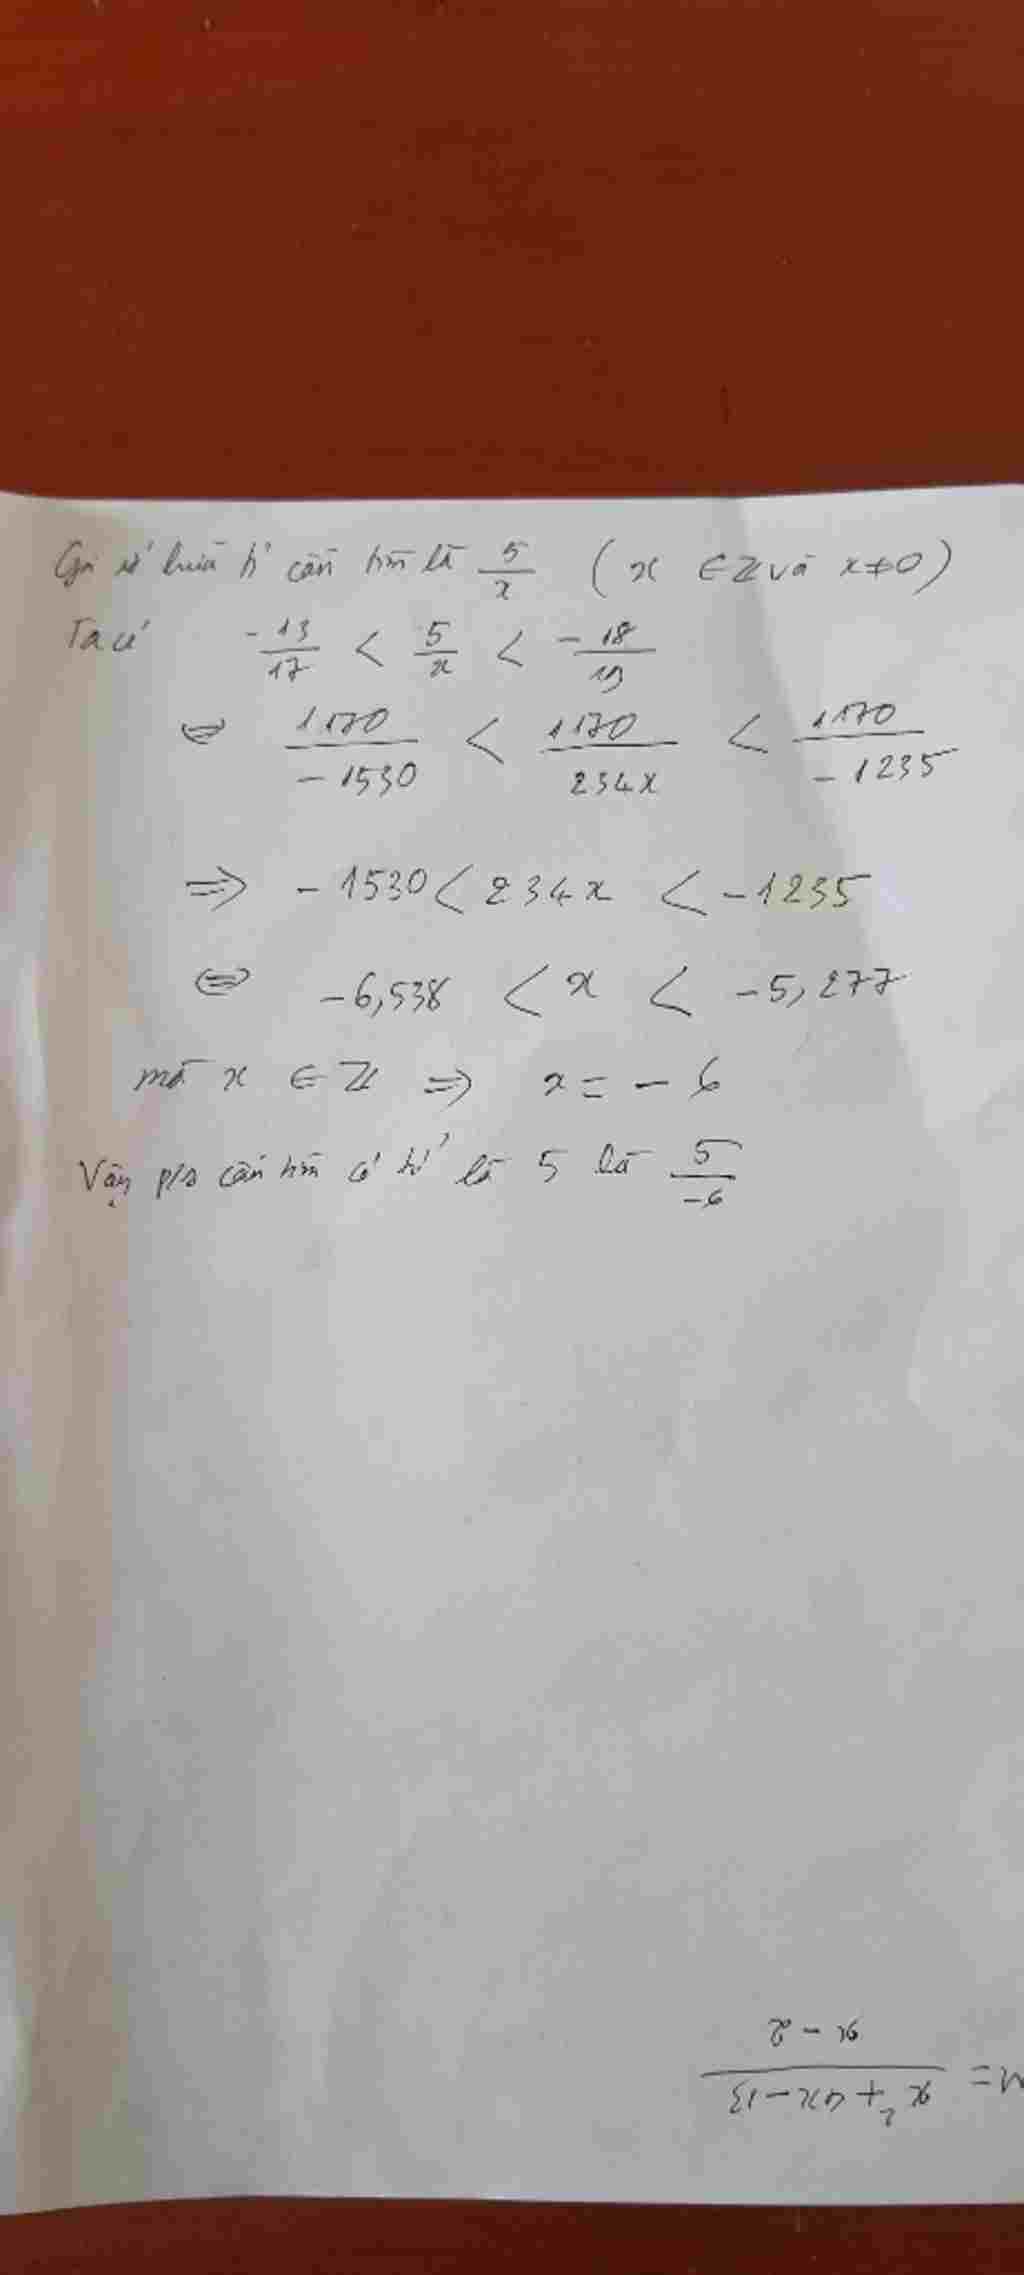 Gọi số hữu tỉ cần tìm là 5/x ( x ∈ Z và x ≠ 0 )
Ta có -13/17 < 5/x < -18/19
⇔ 1170/-1530 < 1170/234x < 1170/-1235
⇒ -1530 < 234x < -1235
⇔ -6,538 < x < -5,277
mà x ∈ Z ⇒ x = -6
Vậy p/s cần tìm có tử là 5 là 5/-6
M = x² + 4x - 13 / x - 2